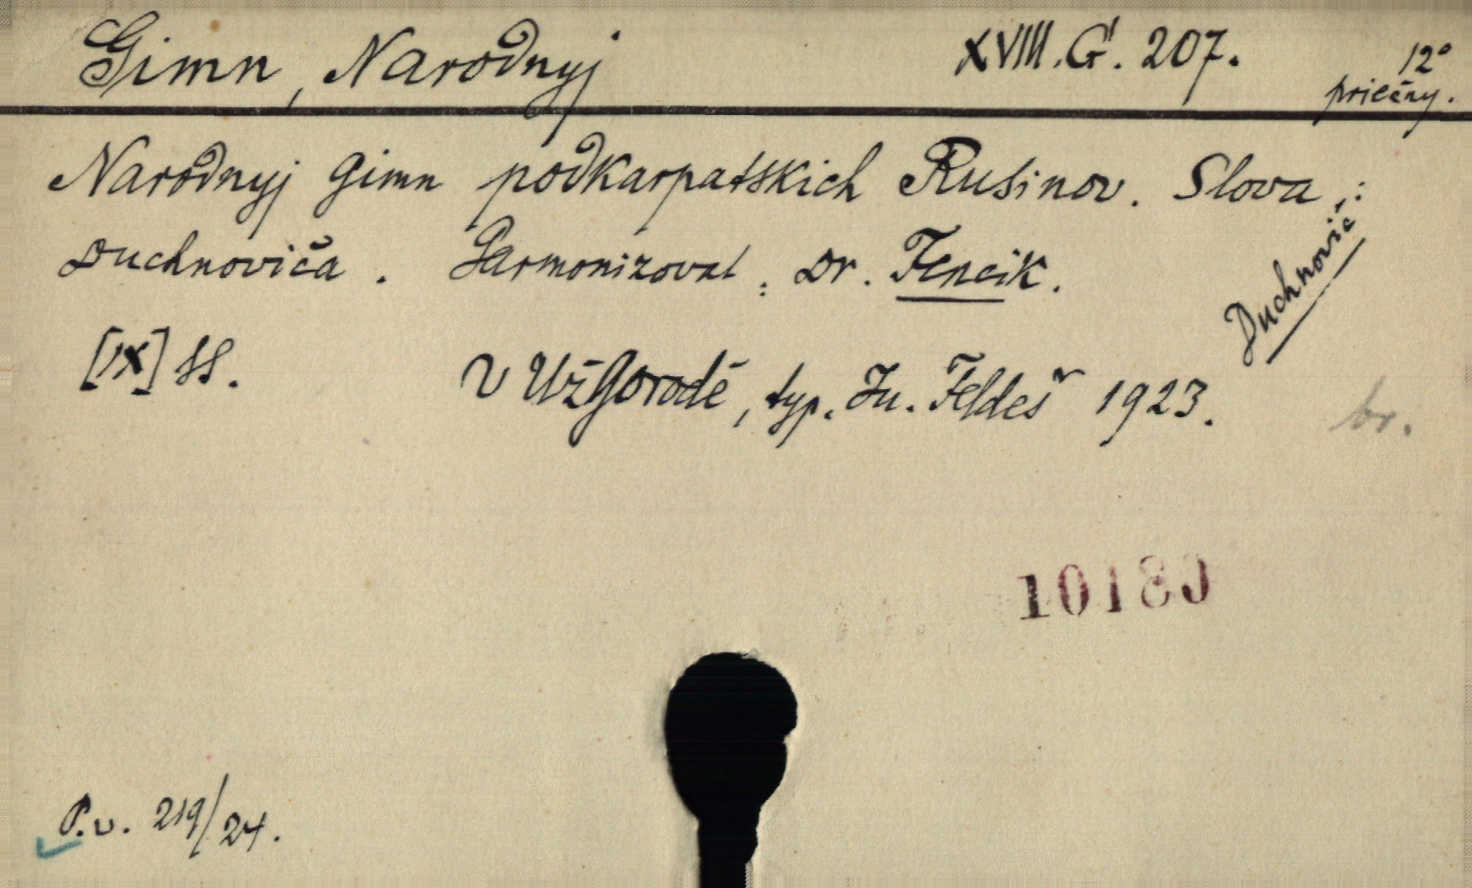 Gimn, Narodnyj XVIII. G'. 207. 12°
priečny.
Narodnyj gimn podkarpatskich Rusinov. Slova:
Duchnoviča. Garmonizoval: Dr. Fencik.
Duchnovič
[IX] ss. V Užgorodě, typ. Ju. Feldeš 1923. br.
10180
P.v. 219/24.